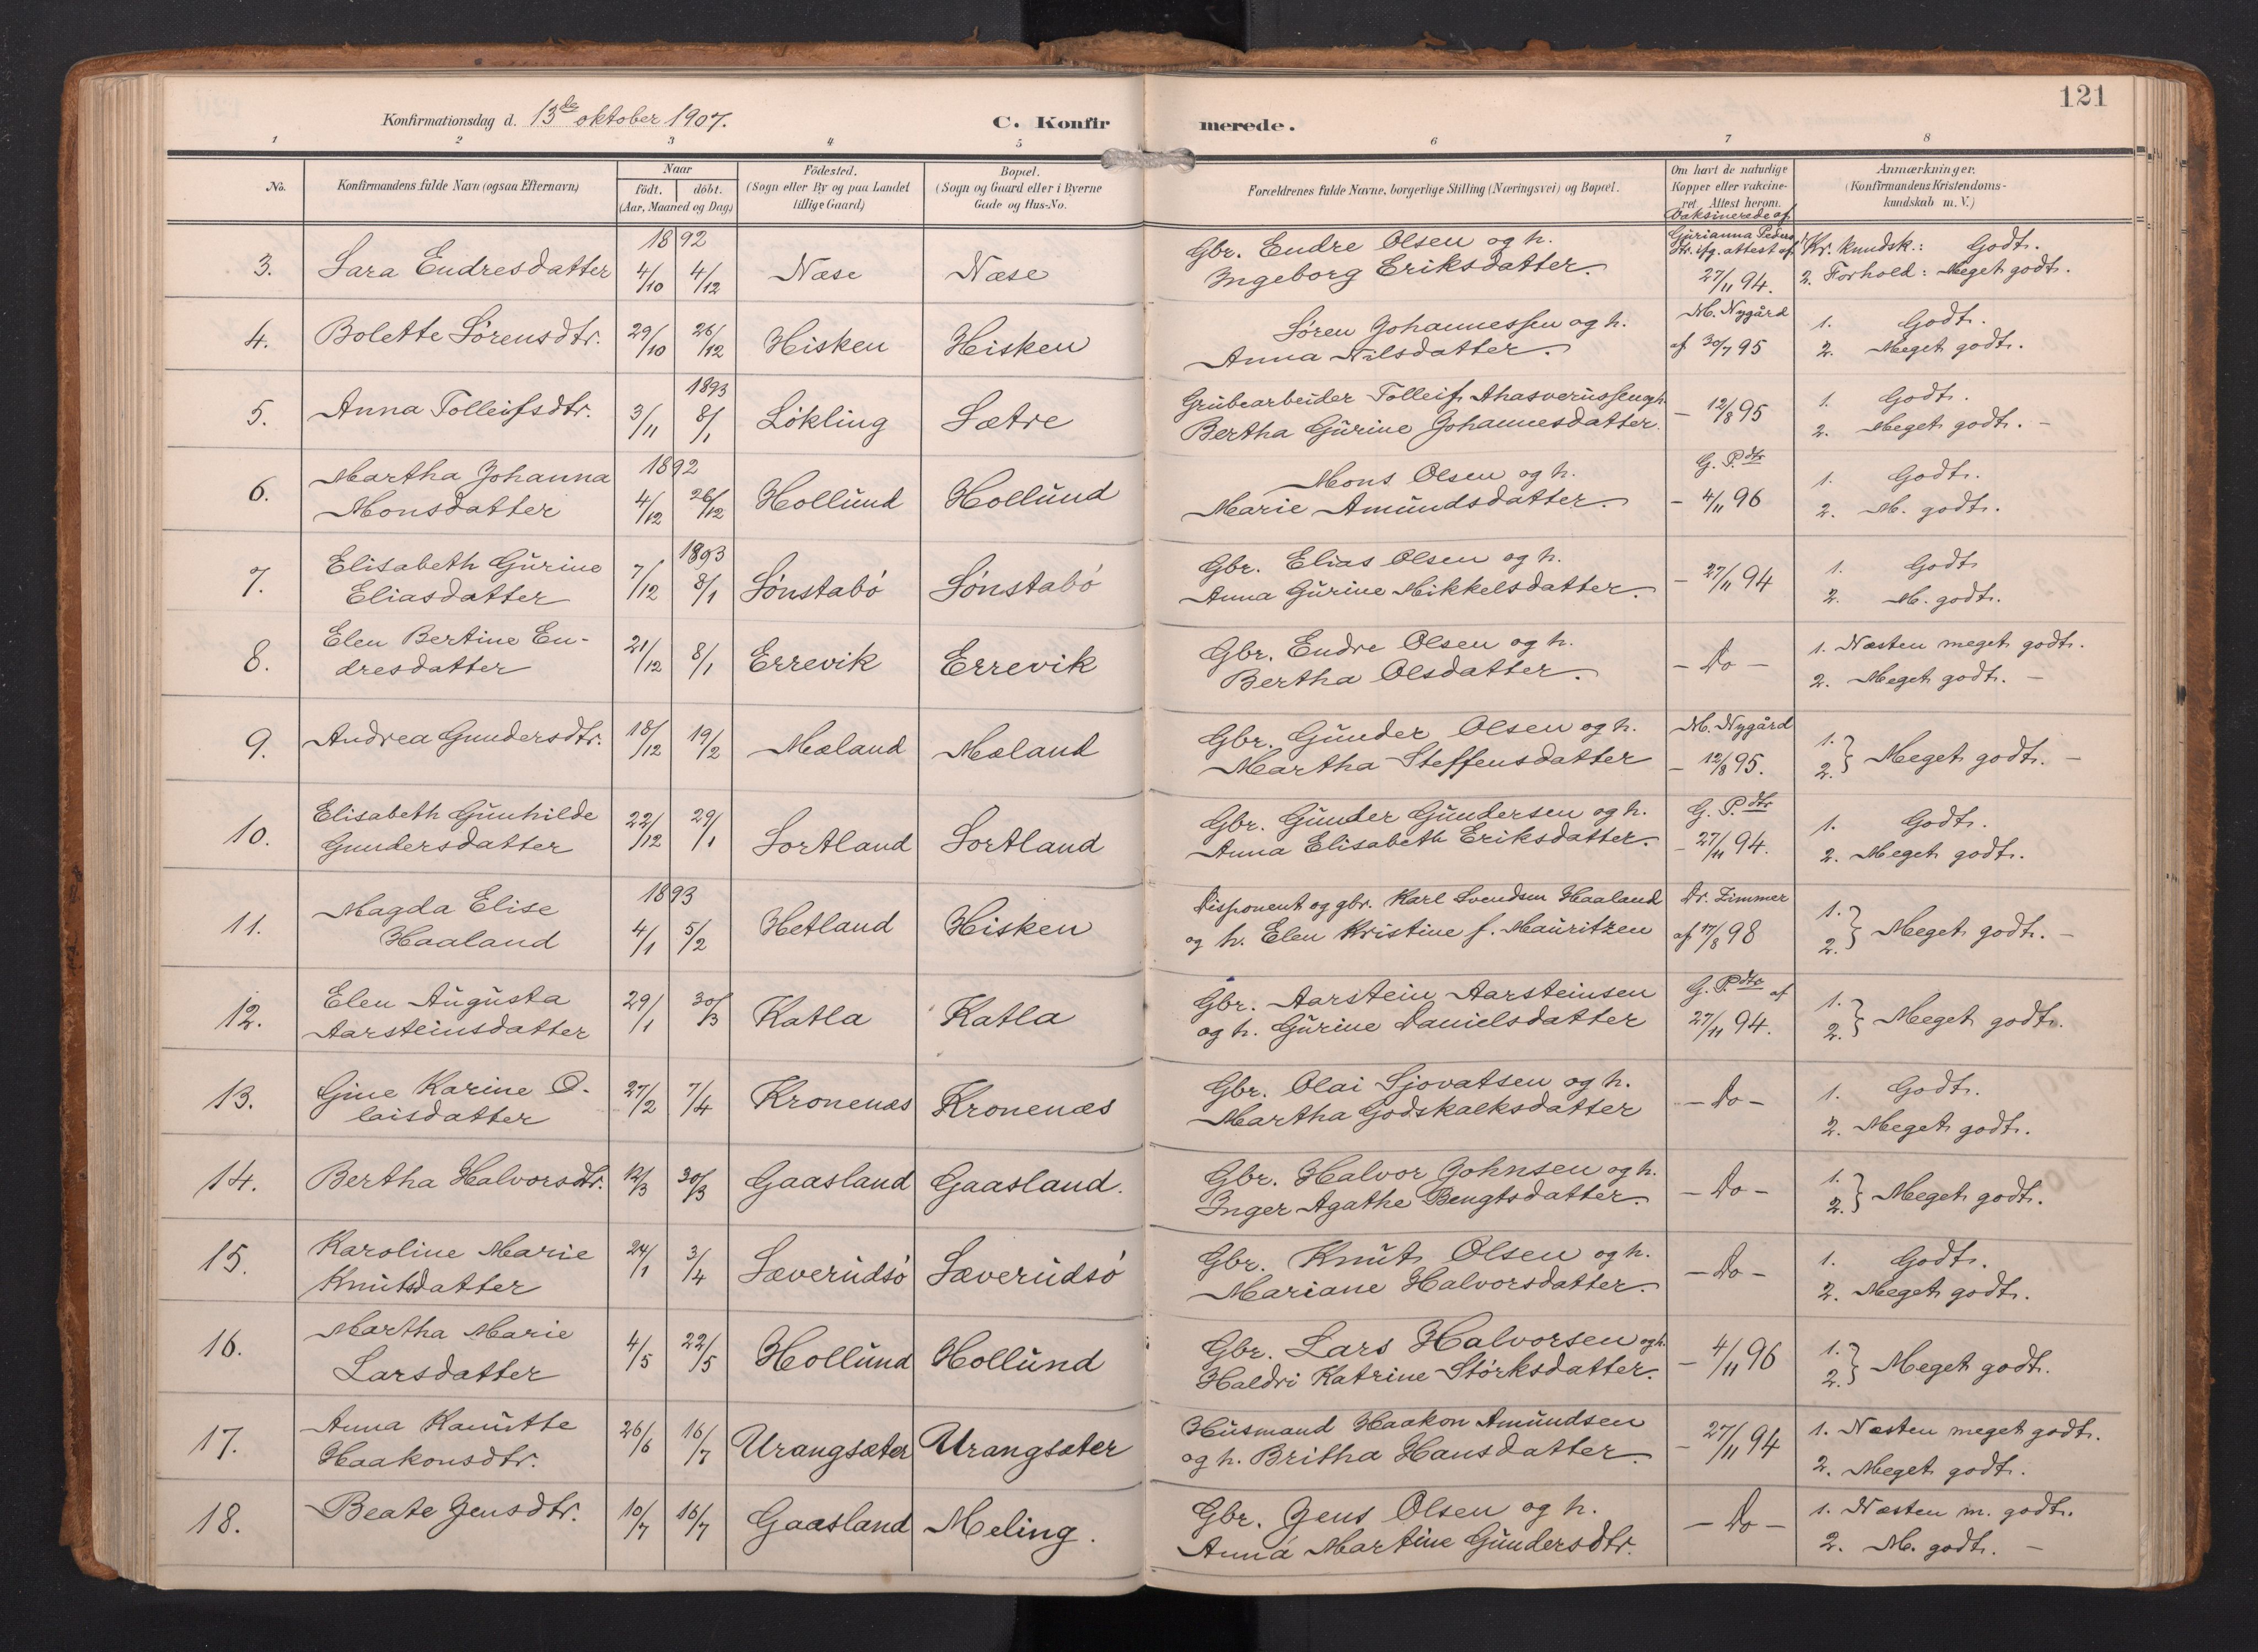 121
Konfirmationsdag d. 13de oktober 1907.
C. Konfirmerede.
1 2 3 4 5 6 7 8
No. | Konfirmandens fulde Navn (ogsaa Efternavn) | Naar födt. döbt. (Aar, Maaned og Dag) | Födested. (Sogn eller By og paa Landet tillige Gaard) | Bopæl. (Sogn og Gaard eller i Byerne Gade og Hus-No. | Forældrenes fulde Navne, borgerlige Stilling (Næringsvei) og Bopæl. | Om havt de naturlige Kopper eller vakcineret. Attest herom. | Anmærkninger. (Konfirmandens Kristendomskundskab m. V.)
Vaksinerede af
1892
3. Sara Endresdatter 4/10 4/12 Næse Næse Gbr. Endre Olsen og h. Ingeborg Eriksdatter. Gurianna Pedersdtr. ifg. attest af 27/11 94. 1. Kr. kundsk.: Godt. 2. Forhold: Meget godt.
4. Bolette Sørensdtr. 29/10 26/12 Hisken Hisken Søren Johannessen og h. Anna Nilsdatter. M. Nygård af 30/7 95 1. Godt. 2. Meget godt.
1893
5. Anna Tolleifsdtr. 3/11 8/1 Løkling Sætre Grubearbeider Tolleif Ahasverussen og h. Bertha Gurine Johannesdatter. - 12/8 95 1. Godt. 2. Meget godt. -
1892
6. Martha Johanna Monsdatter 4/12 26/12 Hollund Hollund Mons Olsen og h. Marie Amundsdatter. G. P.dtr - 4/11 96 1. Godt. 2. M. godt.
1893
7. Elisabeth Gurine Eliasdatter 7/12 8/1 Sønstabø Sønstabø Gbr. Elias Olsen og h. Anna Gurine Mikkelsdatter. - 27/11 94 1. Godt 2. M. godt.
8. Elen Bertine Endresdatter 21/12 8/1 Errevik Errevik Gbr. Endre Olsen og h. Bertha Olsdatter. - Do - 1. Næsten meget godt. 2. Meget godt. -
9. Andrea Gundersdtr. 18/12 19/2 Mæland Mæland Gbr. Gunder Olsen og h. Martha Steffensdatter M. Nygård - 12/8 95. 1. 2. } Meget godt. -
10. Elisabeth Gunhilde Gundersdatter 22/12 29/1 Sortland Sortland Gbr. Gunder Gundersen og h. Anna Elisabeth Eriksdatter. G. P.dtr - 27/11 94. 1. Godt. 2. Meget godt.
1893
11. Magda Elise Haaland 4/1 5/2 Hetland Hisken Disponent og gbr. Karl Svendsen Haaland og h. Elen Kristine f. Mauritzen Dr. Zimmer af 17/8 98 1. 2. } Meget godt. -
12. Elen Augusta Aarsteinsdatter 29/1 30/3 Katla Katla Gbr. Aarstein Aarsteinsen og h. Gurine Danielsdatter G. P.dtr af 27/11 94. 1. 2. } Meget godt.
13. Gine Karine Olaisdatter 27/2 7/4 Kronenæs Kronenæs Gbr. Olai Sjovatsen og h. Martha Godskalksdatter - Do - 1. Godt. 2. Meget godt.
14. Bertha Halvorsdtr. 12/3 30/3 Gaasland Gaasland. Gbr. Halvor Johnsen og h. Inger Agathe Bengtsdatter. - Do - 1. 2. } Meget godt.
15. Karoline Marie Knutsdatter 24/1 3/4 Sæverudsø Sæverudsø Gbr. Knut Olsen og h. Mariane Halvorsdatter. - Do - 1. Godt. 2. Meget godt.
16. Martha Marie Larsdatter 4/5 22/5 Hollund Hollund Gbr. Lars Halvorsen og h. Haldri Katrine Størksdatter. - 4/11 96 1. 2. } Meget godt.
17. Anna Kanutte Haakonsdtr. 26/6 16/7 Urangsæter Urangsæter Husmand Haakon Amundsen og h. Britha Hansdatter. - 27/11 94 1. Næsten meget godt. 2. Meget godt.
18. Beate Jensdtr. 10/7 16/7 Gaasland Meling. Gbr. Jens Olsen og h. Anna Martine Gundersdtr. - Do - 1. Næsten m. godt. 2. M. godt. -